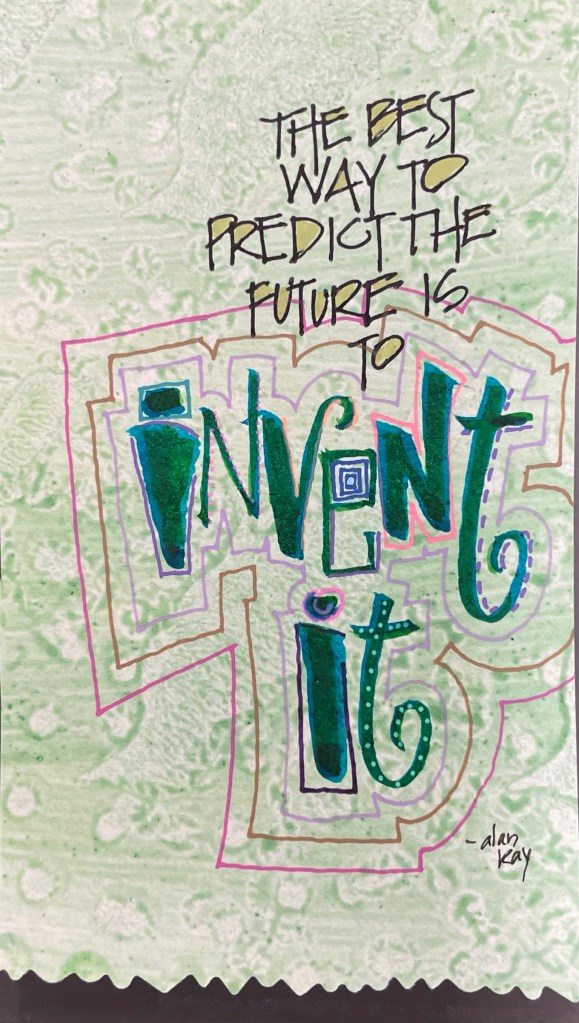 THE BEST
WAY TO
PREDICT THE
FUTURE IS
TO
iNVeNt
it
- alan
Kay